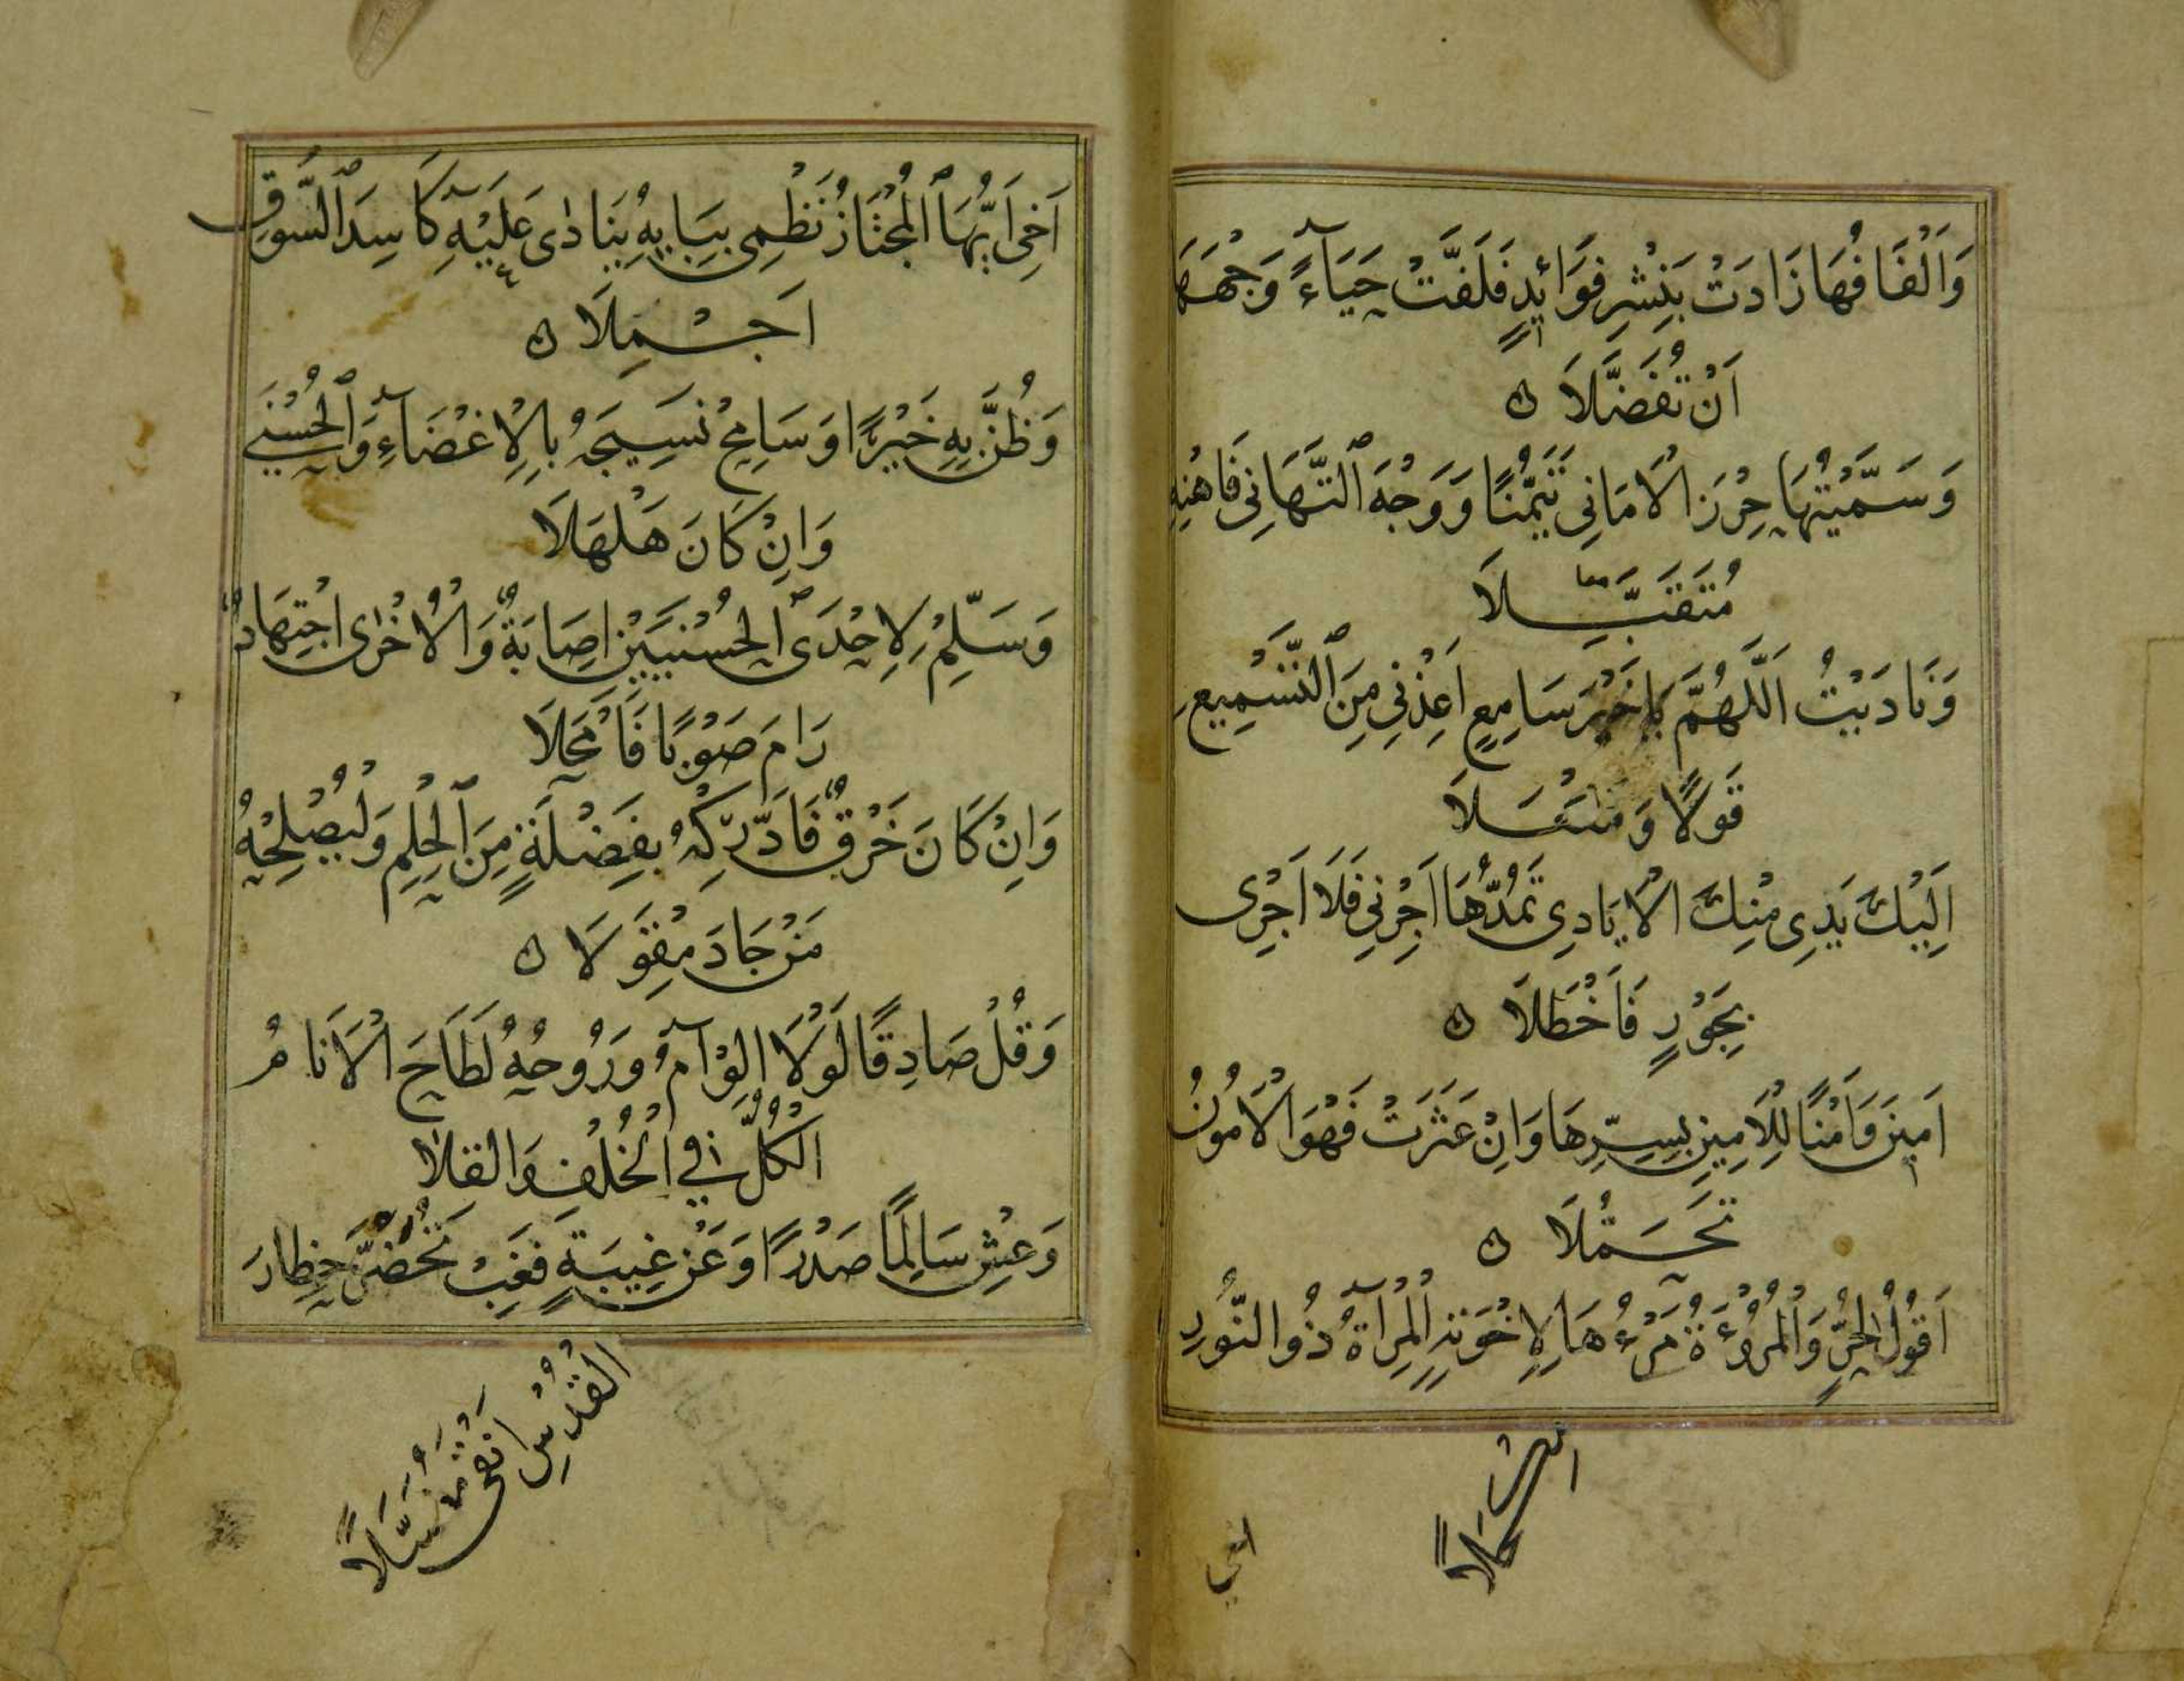 وَاَلْفَافُهَا زَادَتْ بِنَشْرِ فَوَائِدٍ فَلَفَّتْ حَيَاءً وَجْهَهَا
اَنْ تُفَضَّلَا
وَسَمَّيْتُهَا حِرْزَ الْاَمَانِي تَيَمُّنًا وَوَجْهَ التَّهَانِي فَاهْنِهِ
مُتَقَبَّلَا
وَنَادَيْتُ اَللَّهُمَّ يَا خَيْرَ سَامِعٍ اَعِذْنِي مِنَ التَّسْمِيعِ
قَوْلًا وَمَفْعَلَا
اِلَيْكَ يَدِي مِنْكَ الْاَيَادِي تَمُدُّهَا اَجِرْنِي فَلَا اَجْرِي
بِجَوْرٍ فَاَخْطَلَا
اَمِينَ وَاَمْنًا لِلْاَمِينِ بِسِرِّهَا وَاِنْ عَثَرَتْ فَهْوَ الْاَمُونُ
تَحَمُّلَا
اَقُولُ لِحُرٍّ وَالْمُرُوْءَةُ مَرْءُهَا لِاِخْوَتِهِ الْمِرْآةُ ذُو النُّورِ
مِكْحَلًا
اخي
اَخِي اَيُّهَا الْمُجْتَازُ نَظْمِي بِبَابِهِ يُنَادٰى عَلَيْهِ كَاسِدَ السُّوقِ
اَجْمِلَا
وَظُنَّ بِهِ خَيْرًا وَسَامِحْ نَسِيجَهُ بِالْاِغْضَاءِ وَالْحُسْنٰى
وَاِنْ كَانَ هَلْهَلَا
وَسَلِّمْ لِاِحْدَى الْحُسْنَيَيْنِ اِصَابَةٌ وَالْاُخْرٰى اجْتِهَادٌ
رَامَ صَوْبًا فَاَمْحَلَا
وَاِنْ كَانَ خَرْقٌ فَادَّرِكْهُ بِفَضْلَةٍ مِنَ الْحِلْمِ وَلْيُصْلِحْهُ
مَنْ جَادَ مِقْوَلَا
وَقُلْ صَادِقًا لَوْلَا الْوِآمُ وَرُوحُهُ لَطَاحَ الْاَنَامُ
الْكُلُّ فِي الْخُلْفِ وَالْقِلَا
وَعِشْ سَالِمًا صَدْرًا وَعَنْ غِيبَةٍ فَغِبْ تُحَضَّرْ حِظَارَ
الْقُدْسِ اَنْقٰى مُغَسَّلًا